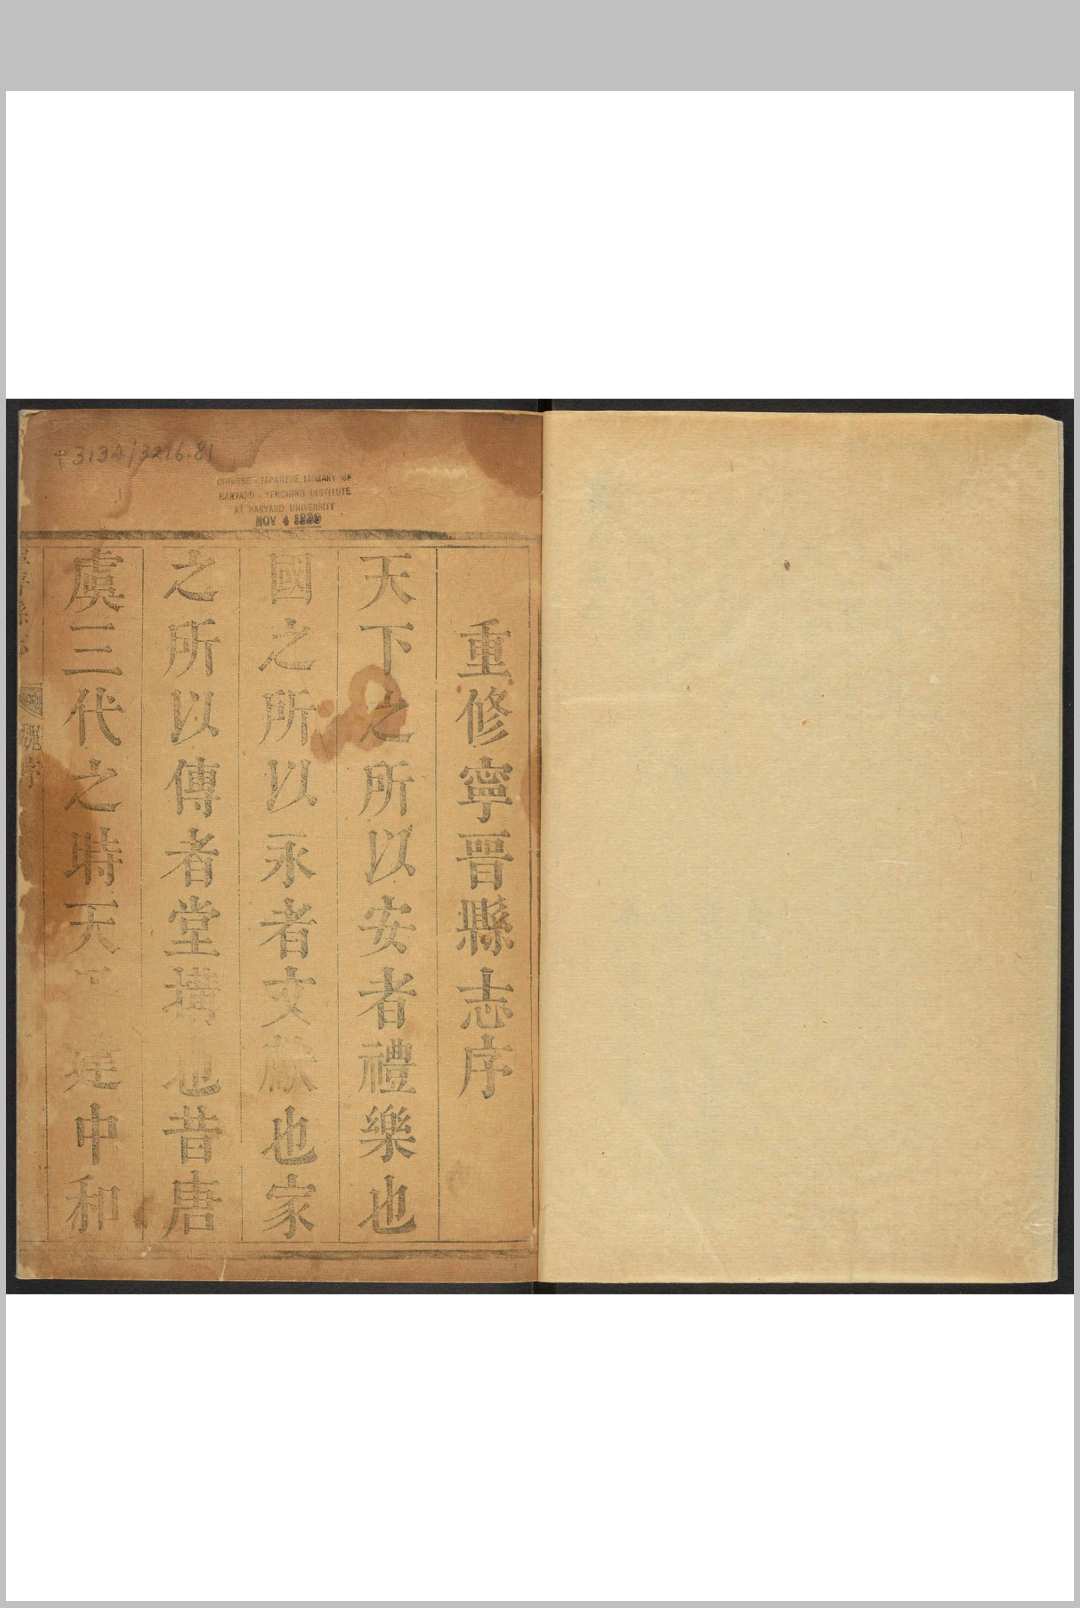 T 3134/3216.81
CHINESE - JAPANESE LIBRARY OF
HARVARD - YENCHING INSTITUTE
AT HARVARD UNIVERSITY
NOV 4
重修寧晉縣志序
天下之所以安者禮樂也
國之所以永者文獻也家
之所以傳者堂搆也昔唐
虞三代之時天 建中和